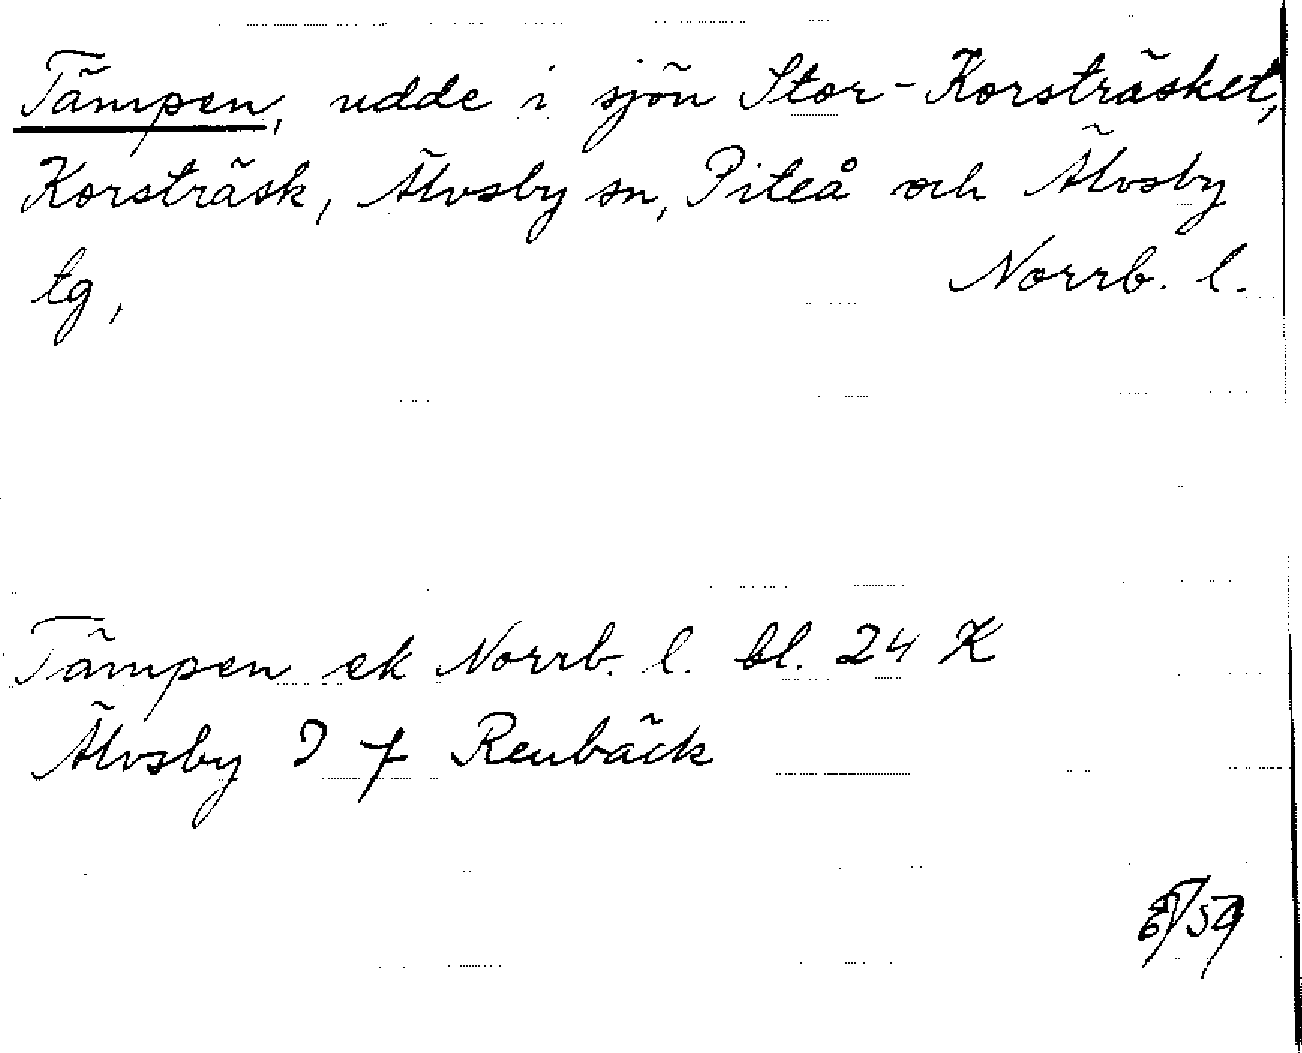 Tämpen, udde i sjön Stor-Korsträsket,
Korsträsk, Älvsby sn, Piteå och Älvsby
tg, Norrb. l.
Tämpen ek Norrb. l. bl. 24 K
Älvsby I f Renbäck